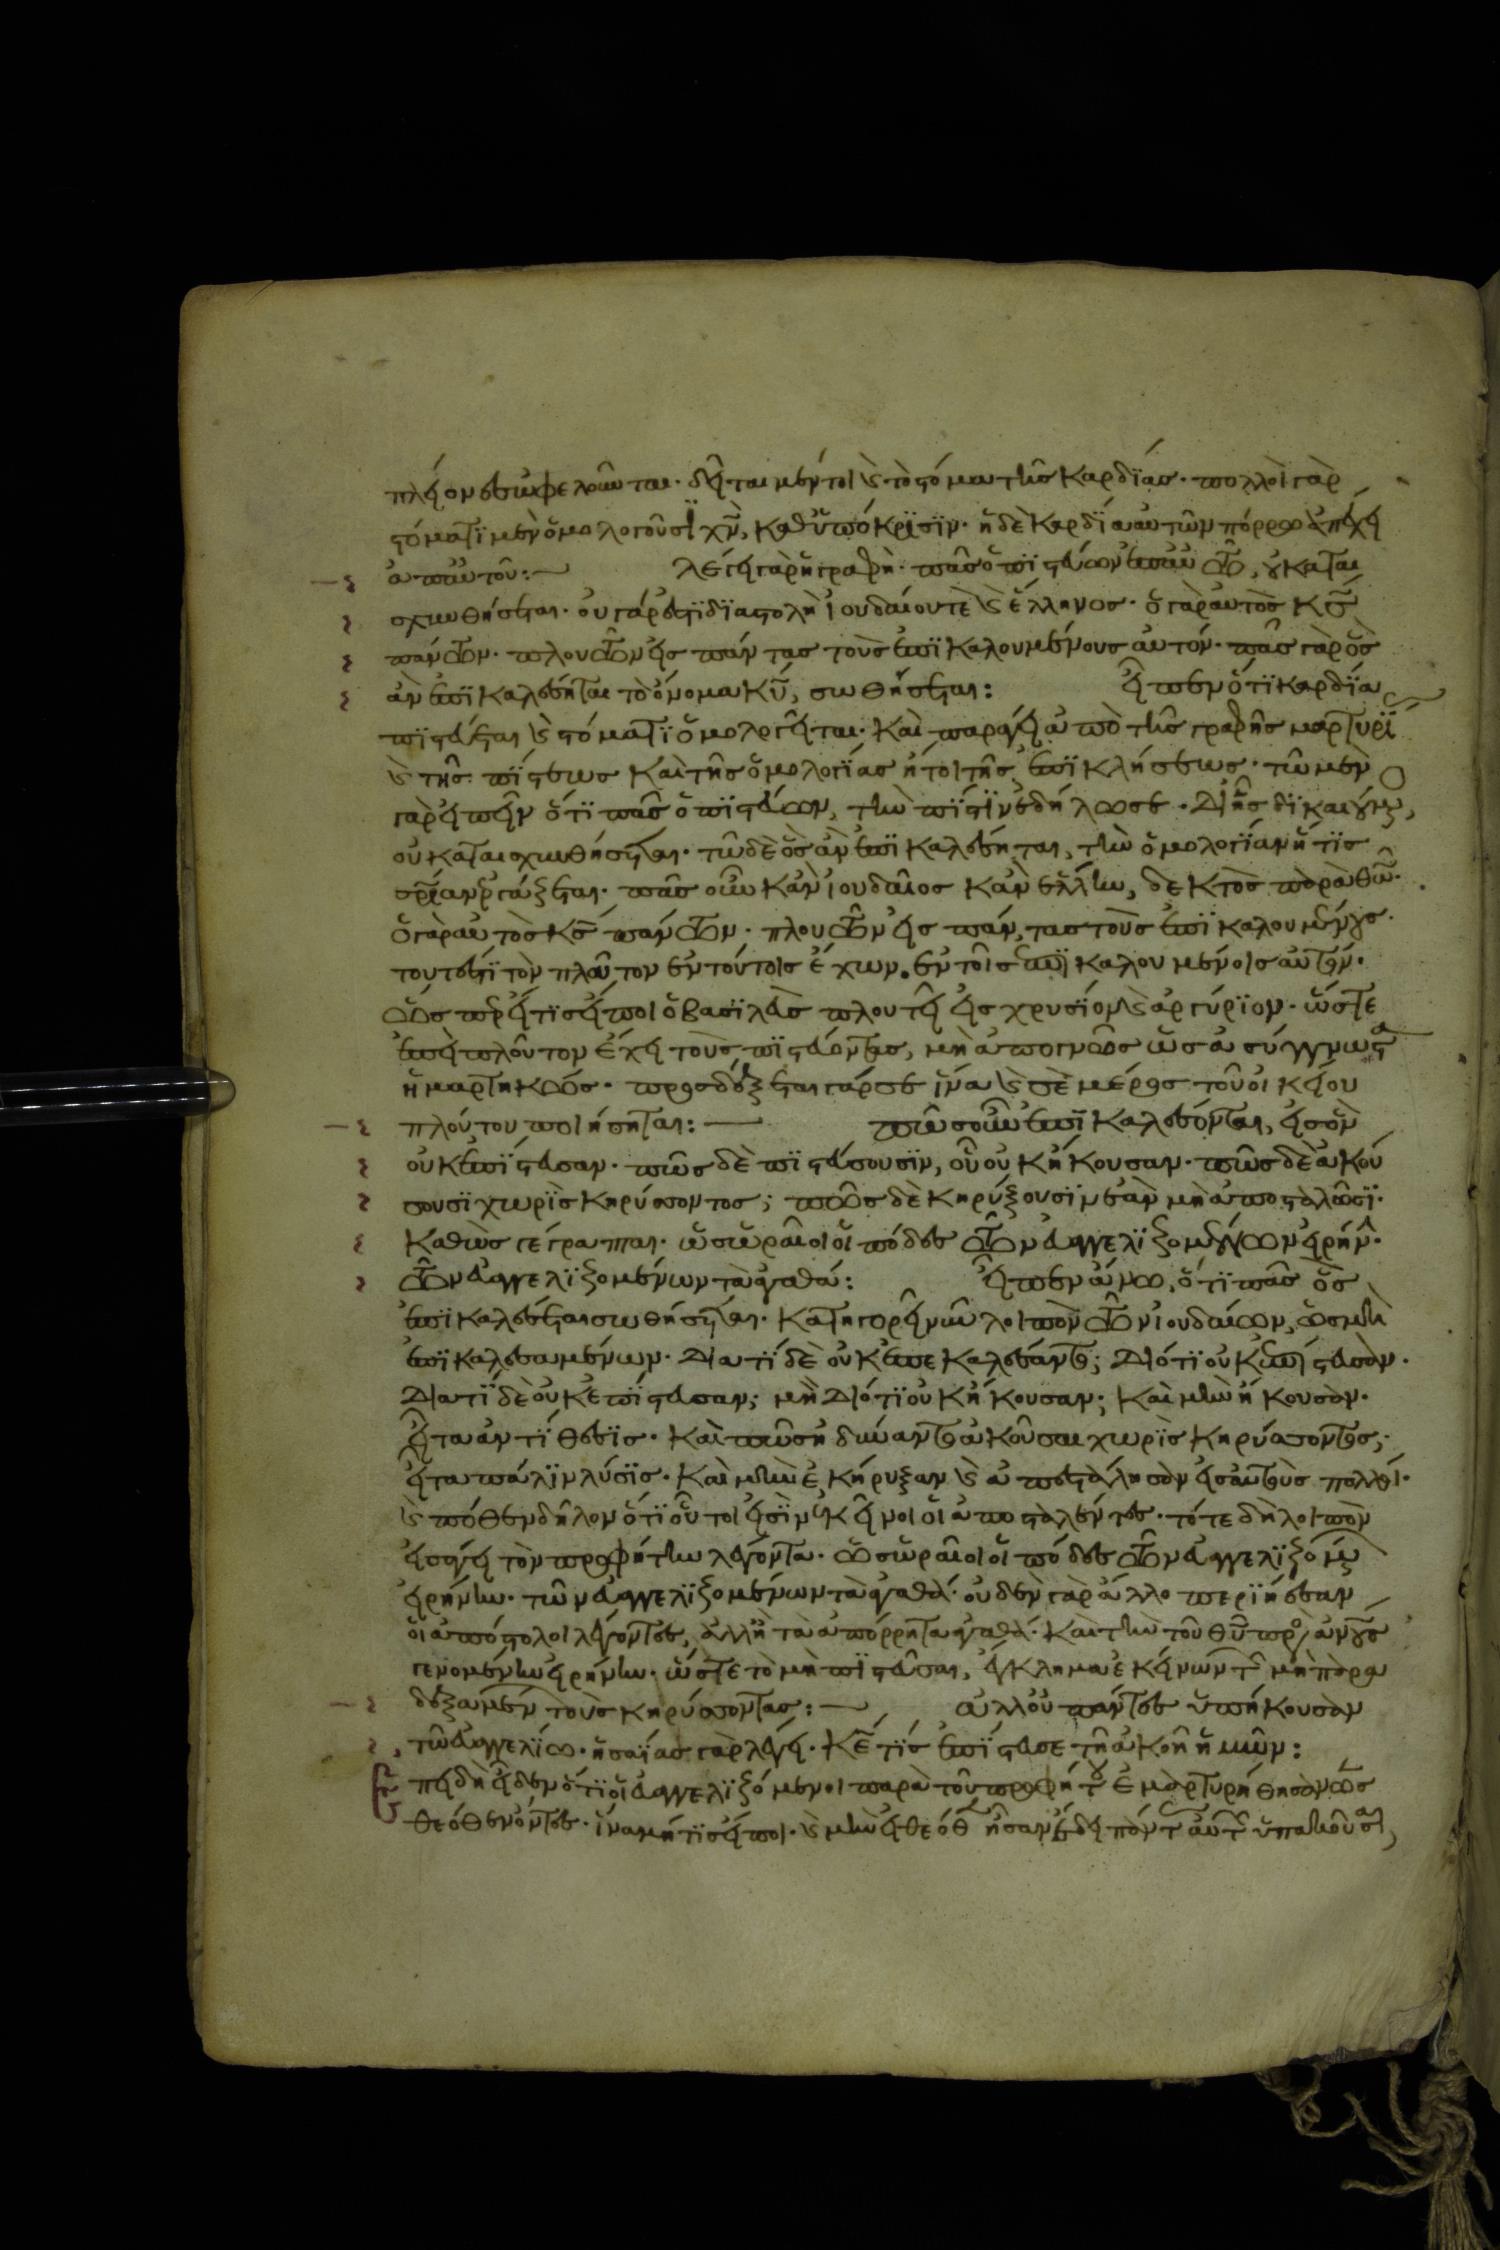 πλείονες ὠφελοῦνται· δεῖται μέντοι καὶ τὸ στόμα τῆς καρδίας· πολλοὶ γὰρ
στόματι μὲν ὁμολογοῦσι χ̅ν̅, καθ' ὑπόκρισιν· ἡ δὲ καρδία αὐτῶν πόρρω ἀπέχει
ἀπ' αὐτοῦ: λέγει γὰρ ἡ γραφὴ· πᾶς ὁ πιστεύων ἐπ' αὐτῷ, οὐ καται
σχυνθήσεται· οὐ γάρ ἐστι διαστολὴ ἰουδαίου τὲ καὶ ἕλληνος· ὁ γὰρ αὐτὸς κ̅ς̅
πάντων· πλουτῶν εἰς πάντας τοὺς ἐπικαλουμένους αὐτόν· πᾶς γὰρ ὃς
ἂν ἐπικαλέσηται τὸ ὄνομα κ̅υ̅, σωθήσεται: εἶπεν ὅτι καρδία
πιστεύεται καὶ στόματι ὁμολογεῖται· καὶ παράγει ἀπὸ τῆς γραφῆς μαρτυρί
καὶ τῆς πίστεως καὶ τῆς ὁμολογίας ἤτοι τῆς ἐπικλήσεως· τῷ μὲν
γὰρ εἰπεῖν ὅτι πᾶς ὁ πιστεύων, τὴν πίστιν ἐδήλωσε· δι' ἧς δικαιούμ,
οὐ καταισχυνθήσεται· τῷ δὲ ὃς ἂν ἐπικαλέσηται, τὴν ὁμολογίαν ἥτις
σ̅ρ̅ίαν ἐργάζεται· πᾶς οὖν κἂν ἰουδαῖος κἂν ἕλλην, δεκτὸς παρὰ θ̅ῶ̅·
ὁ γὰρ αὐτὸς κ̅ς̅ πάντων· πλουτῶν εἰς πάντας τοὺς ἐπικαλουμένους·
τουτέστι τὸν πλοῦτον ἐν τούτοις ἔχων· ἐν τοῖς ἐπικαλουμένοις αὐτόν·
ὥσπερ εἴ τις εἴποι ὁ βασιλεὺς πλουτεῖ εἰς χρυσίον καὶ ἀργύριον· ὥστε
ἐπεὶ πλοῦτον ἔχει τοὺς πιστεύοντας, μὴ ἀπογνῷς ὡς ἀσύγγνωστα
ἡμαρτηκώς· προσδέξεται γάρ σε ἵνα καὶ σὲ μέρος τοῦ οἰκείου
πλούτου ποιήσηται: πῶς οὖν ἐπικαλέσονται, εἰς ὃν
οὐκ ἐπίστευσαν· πῶς δὲ πιστεύσουσιν, οὗ οὐκ ἤκουσαν· πῶς δὲ ἀκού
σουσι χωρὶς κηρύσσοντος; πῶς δὲ κηρύξουσιν ἐὰν μὴ ἀποσταλῶσι·
καθὼς γέγραπται· ὡς ὡραῖοι οἱ πόδες τῶν εὐαγγελιζομένων εἰρήνην·
τῶν εὐαγγελιζομένων τὰ ἀγαθά: εἶπεν ἄνω, ὅτι πᾶς ὃς
ἐπικαλέσεται σωθήσεται· κατηγορεῖ νῦν λοιπὸν τῶν ἰουδαίων, ὡς μὴ
ἐπικαλεσαμένων· διατί δὲ οὐκ ἐπεκαλέσαντο; διότι οὐκ ἐπίστευσαν·
διατί δὲ οὐκ ἐπίστευσαν; μὴ διότι οὐκ ἤκουσαν; καὶ μὴν ἤκουσαν·
εἶτα ἀντίθεσις· καὶ πῶς ἠδύναντο ἀκοῦσαι χωρὶς κηρύσσοντος;
εἶτα πάλιν λύσις· καὶ μὴν ἐκήρυξαν καὶ ἀπεστάλησαν εἰς αὐτοὺς πολλοί·
καὶ πόθεν δῆλον ὅτι οὗτοι εἰσὶν ἐκεῖνοι οἱ ἀποσταλέντες· τότε δὴ λοιπὸν
εἰσάγει τὸν προφήτην λέγοντα· ὡς ὡραῖοι οἱ πόδες τῶν εὐαγγελιζομ
εἰρήνην· τῶν εὐαγγελιζομένων τὰ ἀγαθά· οὐδὲν γὰρ ἄλλο περιῄεσαν
οἱ ἀπόστολοι λέγοντες, ἀλλ' ἢ τὰ ἀπόρρητα ἀγαθά· καὶ τὴν τοῦ θ̅υ̅ πρὸς ἀνους
γενομένην εἰρήνην· ὥστε τὸ μὴ πιστεῦσαι, ἔγκλημα ἐκείνων τῶν μὴ παρα
δεξαμένων τοὺς κηρύσσοντας: ἀλλ' οὐ πάντες ὑπήκουσαν
τῷ εὐαγγελίῳ· ἡσαΐας γὰρ λέγει· κ̅ε̅ τίς ἐπίστευσε τῇ ἀκοῇ ἡμῶν:
Ἐπειδὴ ἔδειξεν ὅτι οἱ εὐαγγελιζόμενοι παρὰ τοῦ προφήτου ἐμαρτυρήθησαν ὡς
θεόθεν ὄντες· ἵνα μή τις εἴποι· καὶ μὴν εἰ θεόθεν ἦσαν ἔδει πάντας αὐτῶν ὑπακοῦσαι,